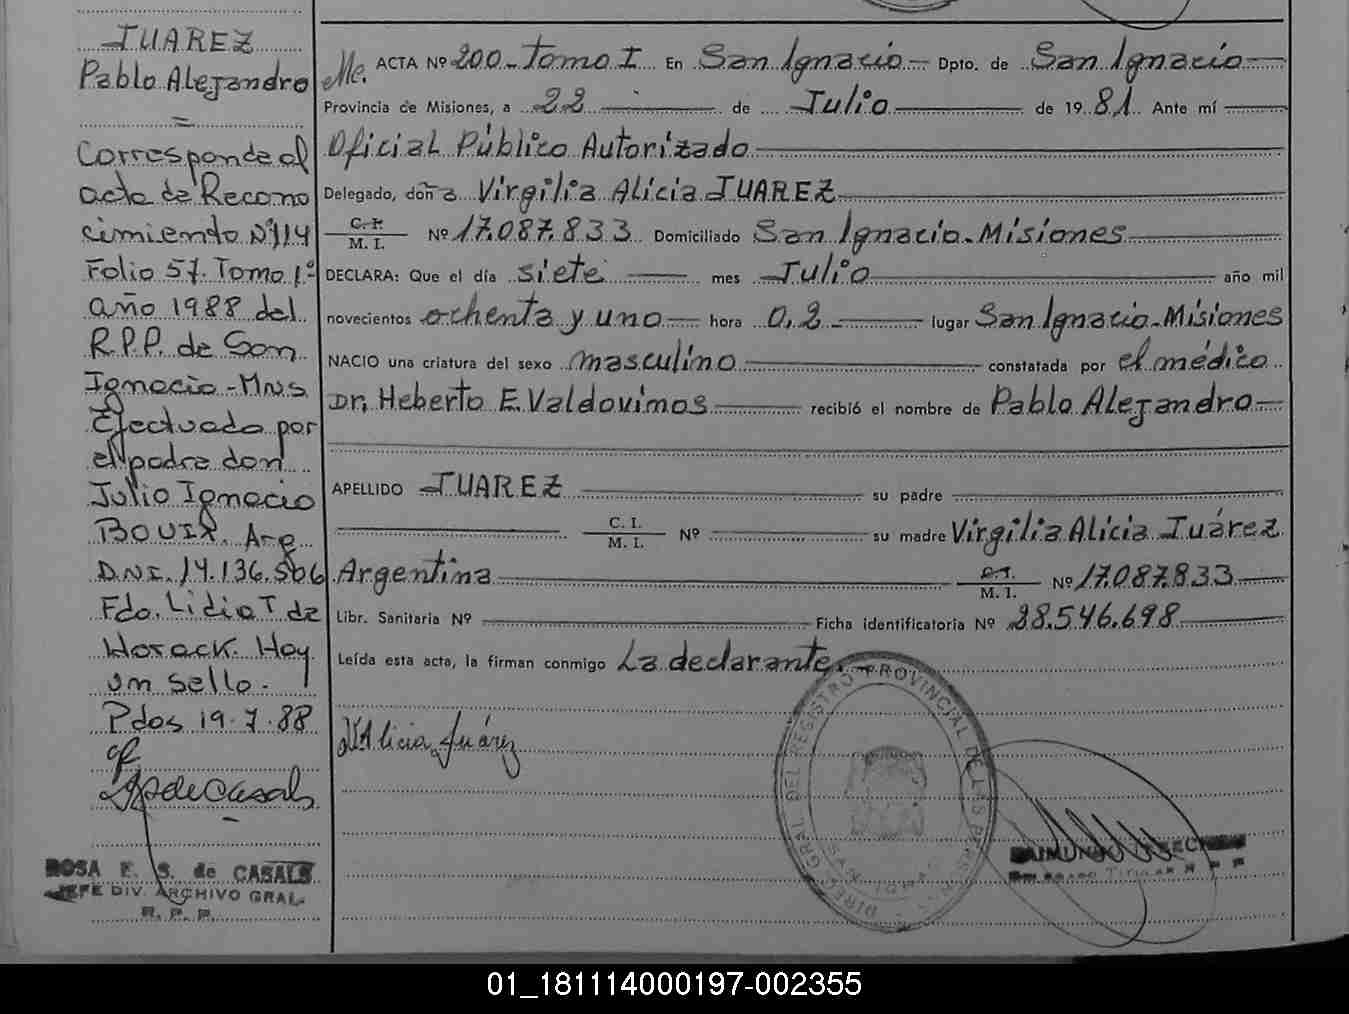 JUAREZ
Pablo Alejandro
=
Corresponde al
acta de Recono
cimiento Nº 114
Folio 57. Tomo 1º
año 1988 del
R.P.P. de San
Ignacio - Mns
Efectuado por
el padre don
Julio Ignacio
BOUIX. Arg
D.N.I. 14.136.506
Fdo. Lidia T de
Horack. Hay
un sello.
Pdas 19.7.88
ROSA E. S. de CASALS
JEFE DIV. ARCHIVO GRAL.
R. P. P.
ACTA Nº 200 - Tomo I En San Ignacio - Dpto. de San Ignacio -
Provincia de Misiones, a 22 de Julio de 1981 Ante mí
Oficial Público Autorizado
Delegado, doña Virgilia Alicia JUAREZ
C. I.
M. I. Nº 17.087.833 Domiciliado San Ignacio - Misiones
DECLARA: Que el día siete mes Julio año mil
novecientos ochenta y uno hora 0,2 lugar San Ignacio - Misiones
NACIO una criatura del sexo masculino constatada por el médico
Dr. Heberto E. Valdovimos recibió el nombre de Pablo Alejandro
APELLIDO JUAREZ su padre
C. I.
M. I. Nº su madre Virgilia Alicia Juárez
Argentina C. I.
M. I. Nº 17.087.833
Libr. Sanitaria Nº Ficha identificatoria Nº 28.546.698
Leída esta acta, la firman conmigo La declarante.
V. Alicia Juárez
DIREC. GRAL. DEL REGISTRO PROVINCIAL DE LAS PERSONAS
RAIMUNDO
DELEGADO TITULAR R P P
01_181114000197-002355